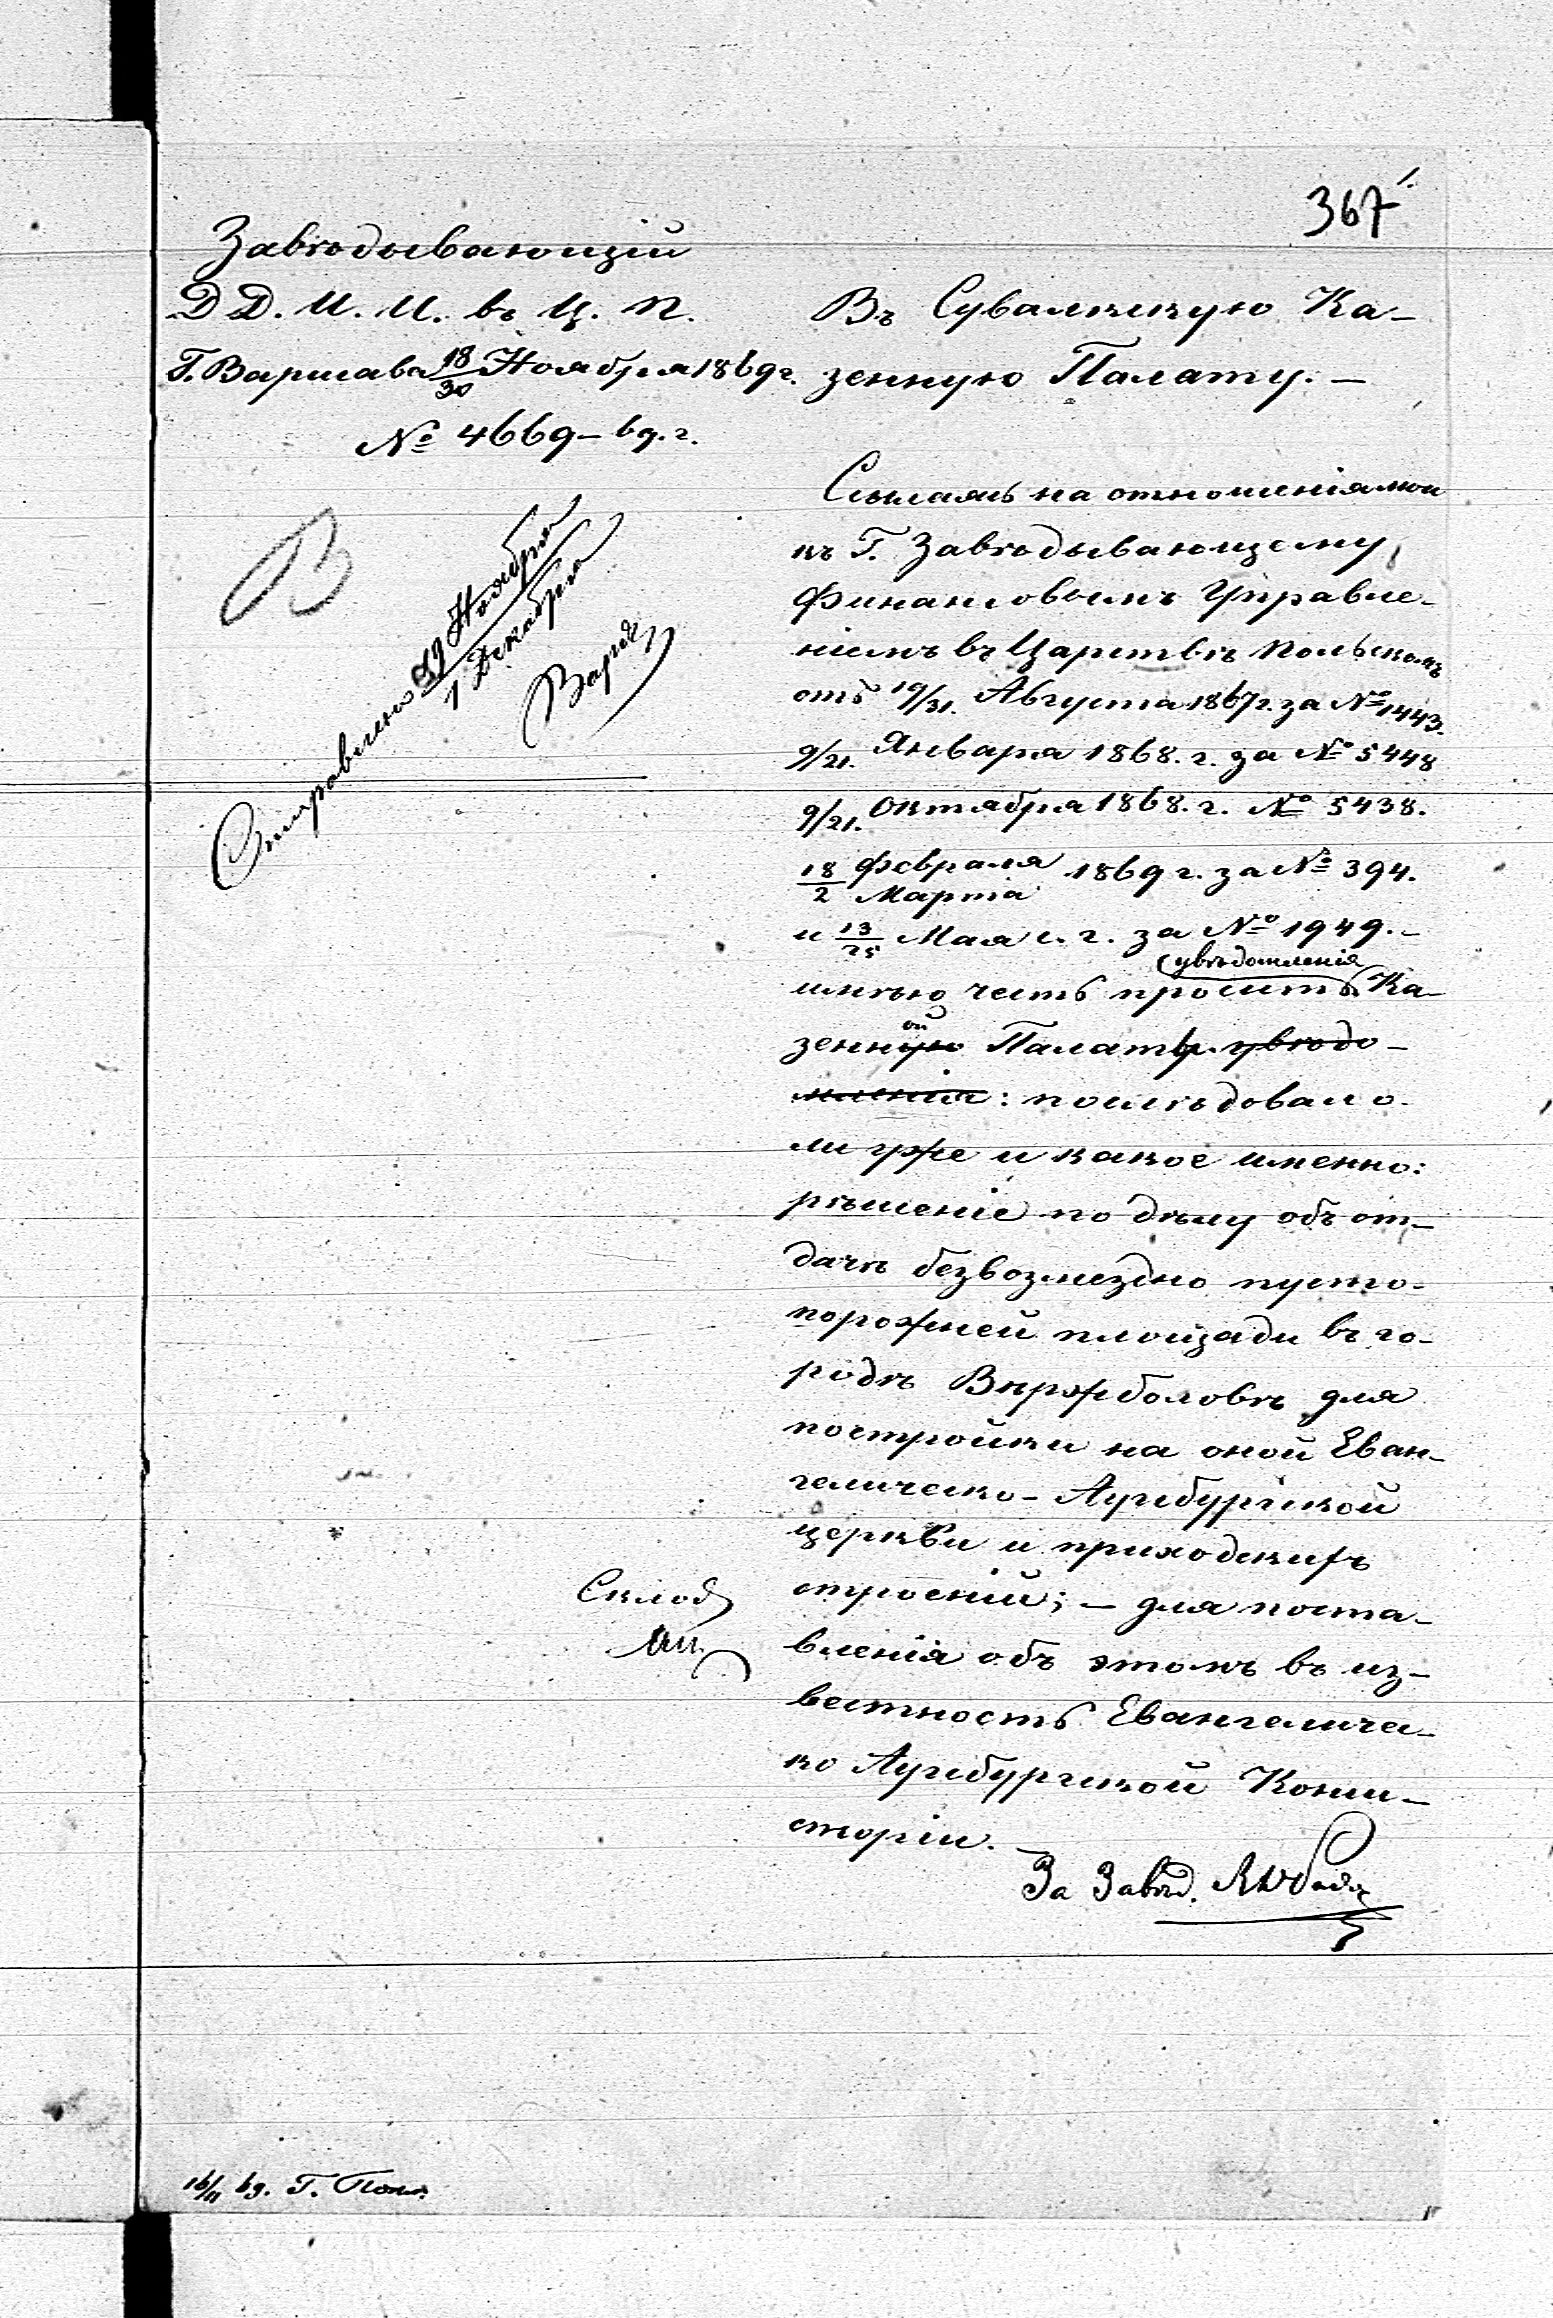 367
Завѣдывающій
Д Д. И. И. въ Ц. П.
Г. Варшава 18/30 Ноября 1869 г.
№ 4669 – 69. г.
В
Отправлено 19 Ноября
1 Декабря
Въ Сувалкскую Ка–
зенную Палату. –
Ссылаясь на отношенія мои
къ Г. Завѣдывающему
Финансовымъ Управле–
ніемъ въ Царствѣ Польскомъ
отъ 19/31. Августа 1867 г. за № 1443.
9/21. Января 1868. г. за № 5448
9/21. Октября 1868. г. № 5438.
18/2 Февраля/Марта 1869 г. за № 394.
и 13/25 Мая с. г. за № 1949. –
увѣдомленія
имѣю честь просить Ка–
ой
зенную Палату. увѣдо–
мленія: послѣдовало
ли уже и какое именно:
рѣшеніе по дѣлу объ от–
дачѣ безвозмездно пусто–
порожней площади въ го–
родѣ Вержболовѣ для
постройки на оной Еван–
гелическо – Аугсбургской
церкви и приходскихъ
строеній; – для поста–
вленія объ этомъ въ из–
вестность Евангеличес–
ко Аугсбургской Конси–
сторіи.
За Завѣд.
16/11 69. Г.